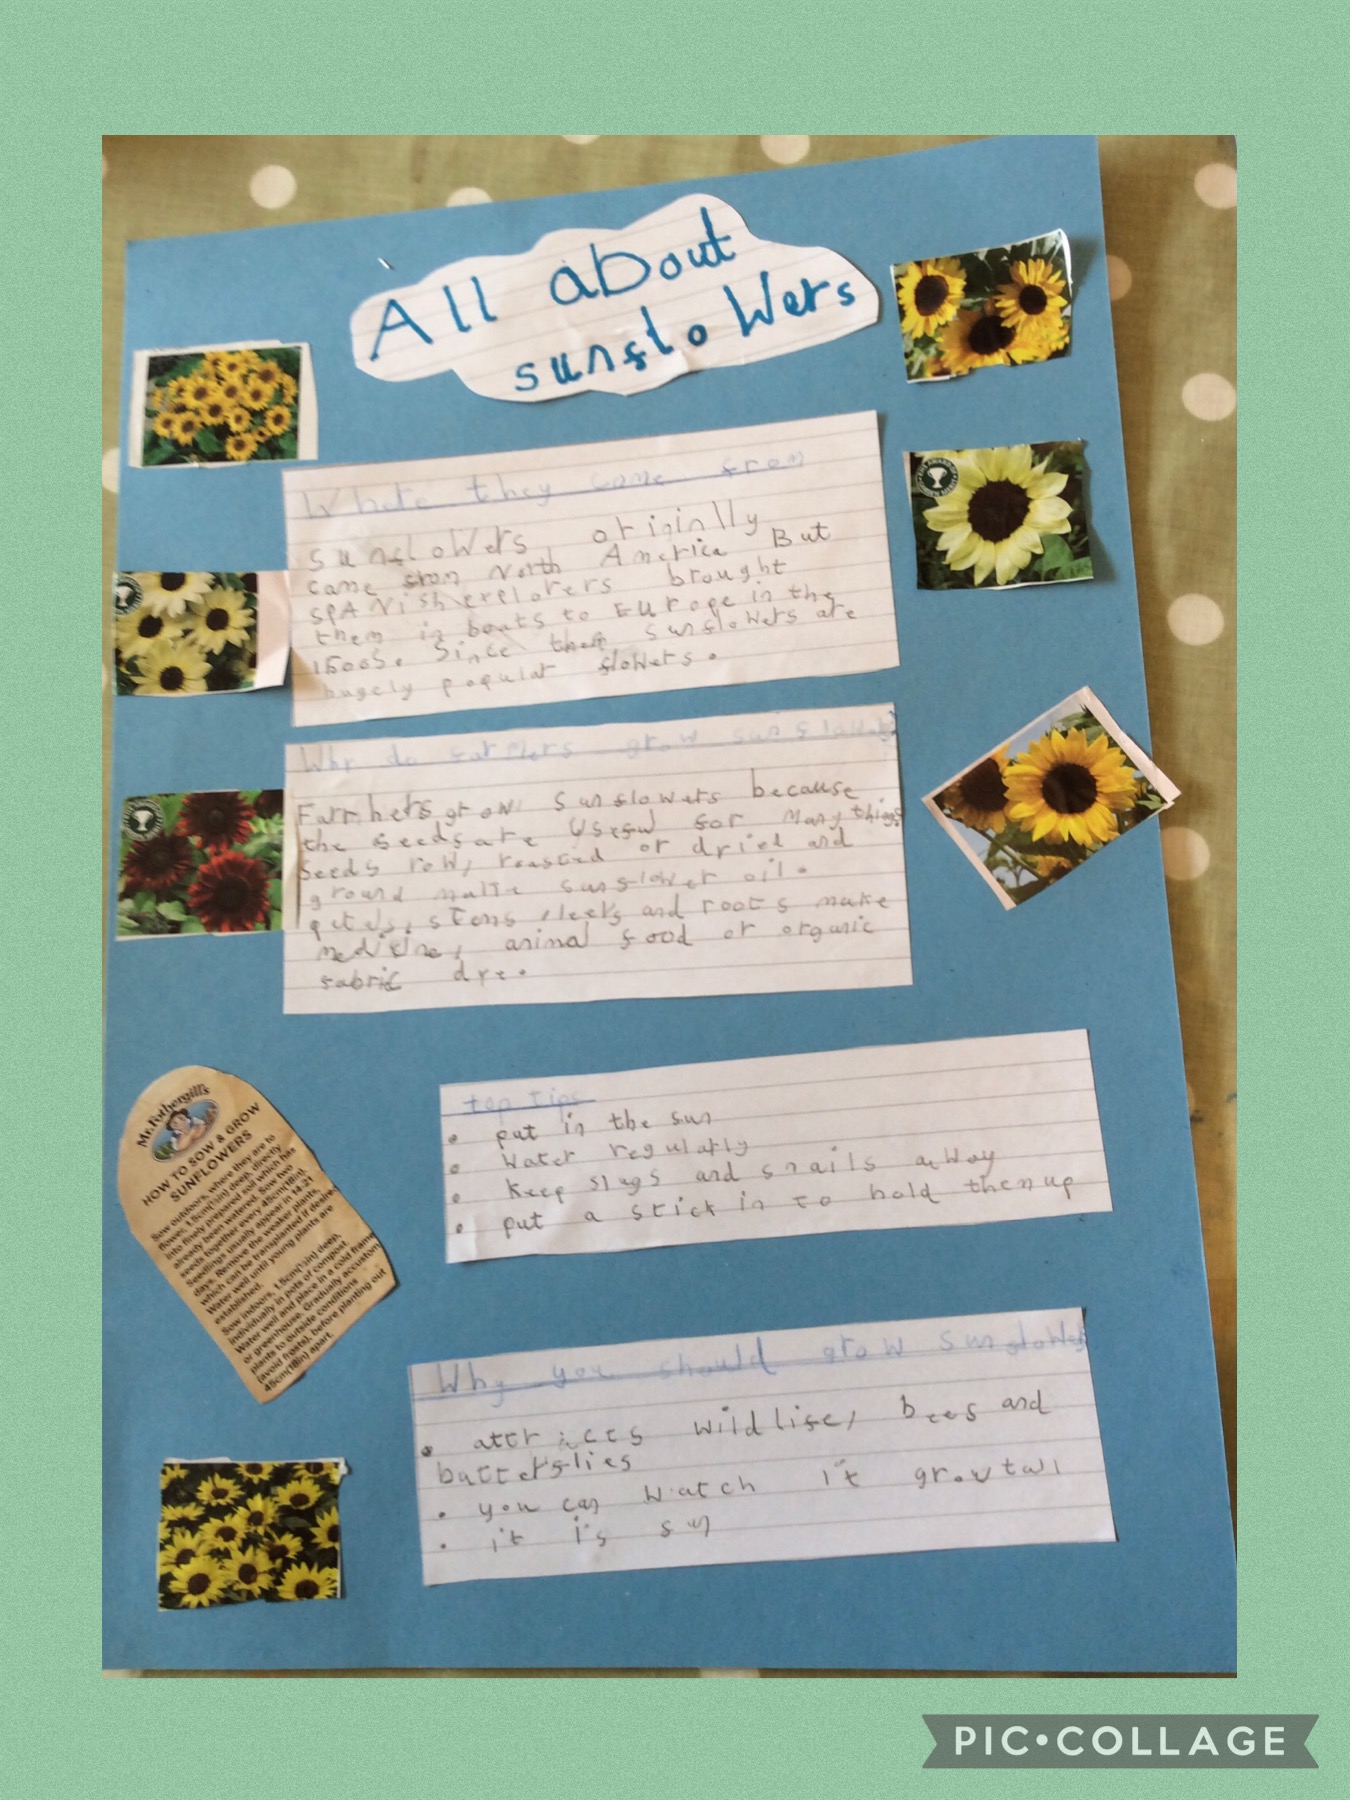 All about
sunflowers
Where they came from
sunflowers originlly
came from North America But
spanish explorers brought
them in boats to Europe in the
1500s. Since then sunflowers are
hugely popular flowers.
Why do farmers grow sunflowers
Farmers grow sunflowers because
the seeds are useful for many things
seeds row, roasted or dried and
ground make sunflower oil.
petals, stems, leefs and roots make
medicine, animal food or organic
fabric dye.
top tips
• put in the sun
• water regularly
• keep slugs and snails away
• put a stick in to hold them up
Why you should grow sunflowers
• attracts wildlife, bees and
butterflies
• you can watch it grow tall
• it is fun
Mr. Fothergill's
HOW TO SOW & GROW
SUNFLOWERS
Sow outdoors, where they are to
flower, 1.5cm(½in) deep, directly
into finely prepared soil which has
already been watered. Sow two
seeds together every 45cm(18in).
Seedlings usually appear in 14-21
days. Remove the weaker plants,
which can be transplanted if desired.
Water well until young plants are
established.
Sow indoors, 1.5cm(½in) deep,
individually in pots of compost.
Water well and place in a cold frame
or greenhouse. Gradually accustom
plants to outside conditions
(avoid frosts), before planting out
45cm(18in) apart.
PIC•COLLAGE